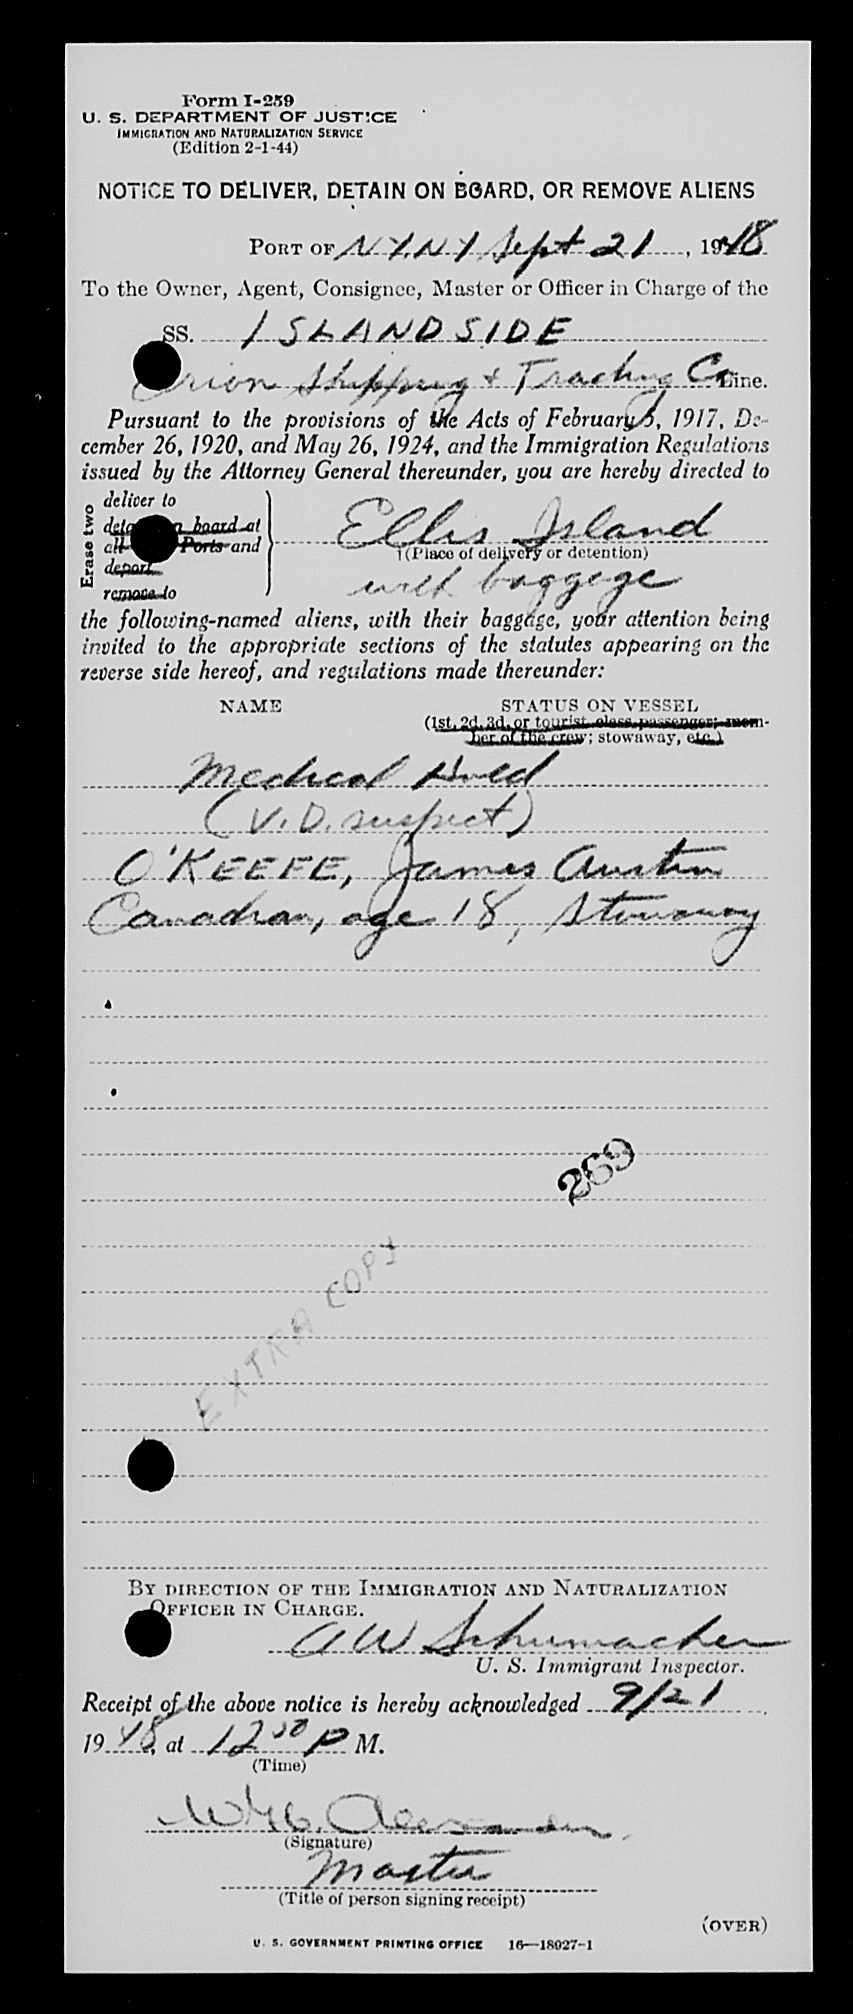 Form I-259
U. S. DEPARTMENT OF JUSTICE
IMMIGRATION AND NATURALIZATION SERVICE
(Edition 2-1-44)
NOTICE TO DELIVER, DETAIN ON BOARD, OR REMOVE ALIENS
PORT OF N.Y. N.Y Sept 21, 1948
To the Owner, Agent, Consignee, Master or Officer in Charge of the
SS. ISLANDSIDE
Orion Shipping & Trading Co Line.
Pursuant to the provisions of the Acts of February 5, 1917, De-
cember 26, 1920, and May 26, 1924, and the Immigration Regulations
issued by the Attorney General thereunder, you are hereby directed to
Erase two
deliver to
board at
all Ports and
deport
remove to
Ellis Island
(Place of delivery or detention)
with baggage
the following-named aliens, with their baggage, your attention being
invited to the appropriate sections of the statutes appearing on the
reverse side hereof, and regulations made thereunder:
NAME STATUS ON VESSEL
(1st, 2d, 3d, or tourist class passenger; mem-
ber of the crew; stowaway, etc.)
Medical Hold
(V.D. suspect)
O'KEEFE, James Austin
Canadian, age 18, Stowaway
269
EXTRA COPY
BY DIRECTION OF THE IMMIGRATION AND NATURALIZATION
OFFICER IN CHARGE.
A W Schumacher
U. S. Immigrant Inspector.
Receipt of the above notice is hereby acknowledged 9/21
1948, at 12 50 P M.
(Time)
Alexander
(Signature)
Master
(Title of person signing receipt)
(OVER)
U. S. GOVERNMENT PRINTING OFFICE 16—18027-1